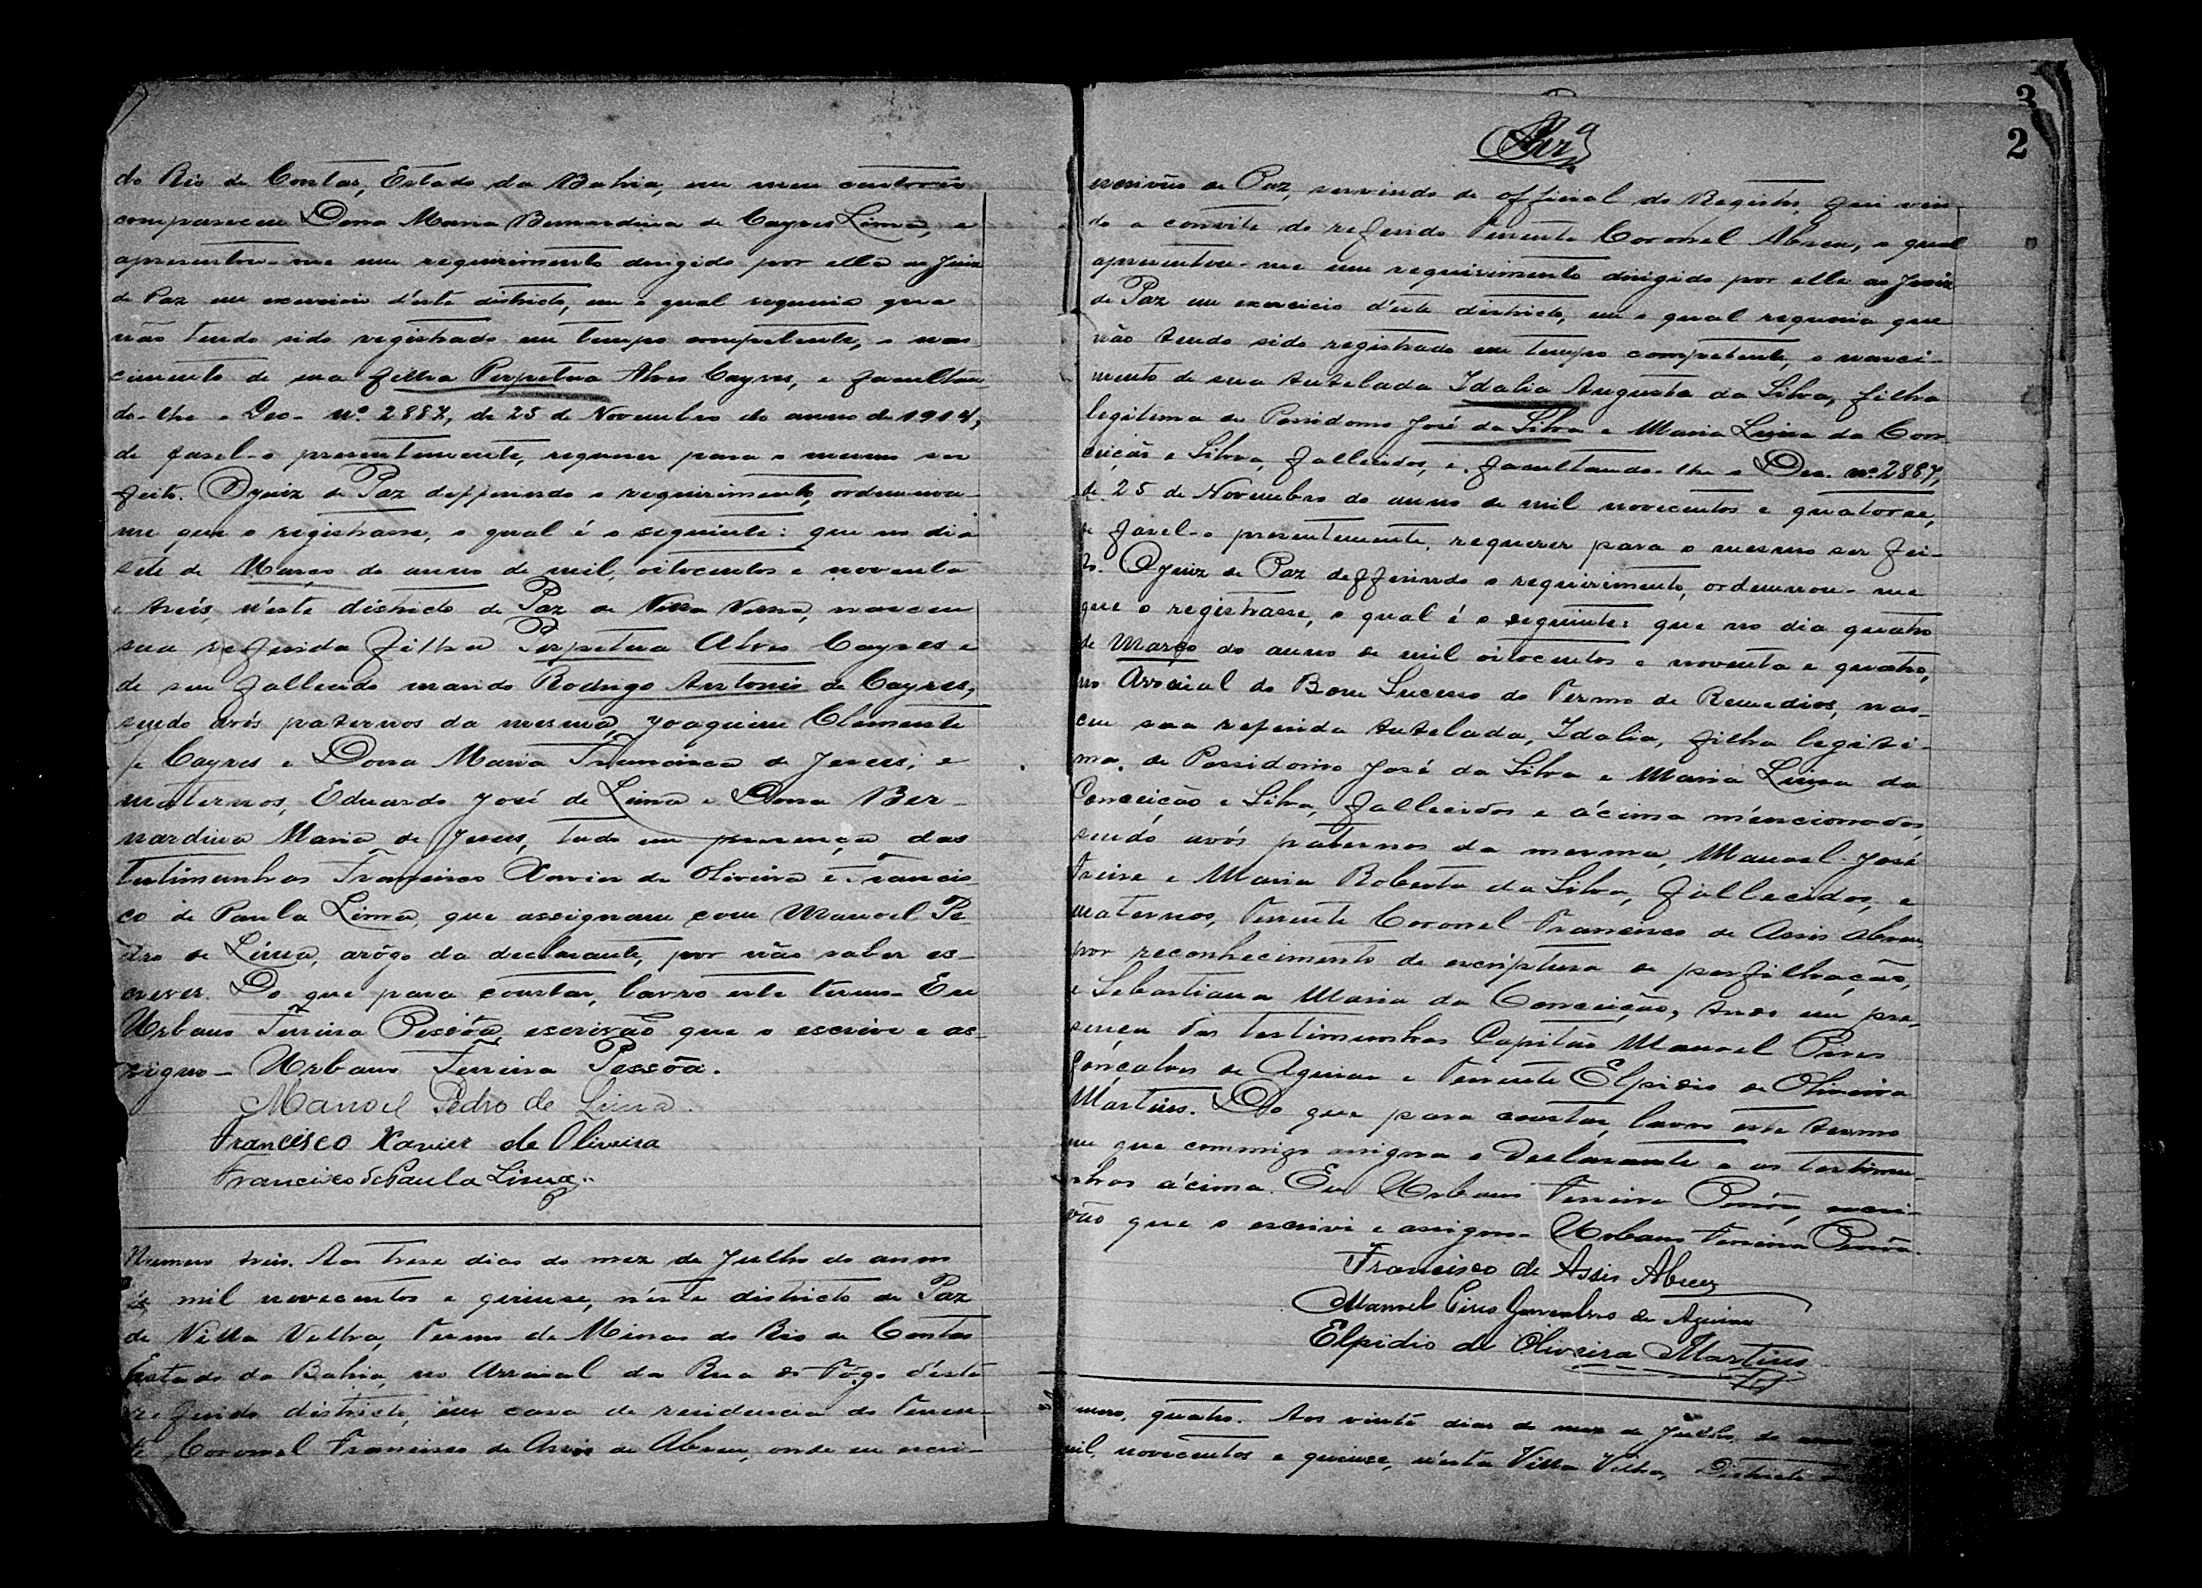 do Rio de Contas, Estado da Bahia, em meu cartorio
compareceu Dona Maria Bernardina de Cayres Lima, e
apresentou-me um requerimento dirigido por ella ao Juiz
de Paz em exercicio d'este districto, em o qual requeria que
não tendo sido registrado em tempo competente, o nas-
cimento de sua filha Perpetua Alves Cayres, e facultan
do-lhe o Dec. nº 2887, de 25 de Novembro do anno de 1914,
de fasel-o presentemente, requerer para o mesmo ser
feito. O Juiz de Paz defferindo o requirimento, ordennou-
me que o registrasse, o qual é o seguinte: que no dia
sete de Março do anno de mil, oitocentos e noventa
e treis, n'este districto de Paz de Villa Velha, nasceu
sua referida filha Perpetua Alves Cayres e
de seu fallecido marido Rodrigo Antonio de Cayres,
sendo avós paternos da mesma, Joaquim Clemente
de Cayres e Dona Maria Francisca de Jesus; e
maternos, Eduardo José de Lima e Dona Ber-
nardina Maria de Jesus, tudo em presença das
testimunhas Francisco Xavier de Oliveira e Francis-
co de Paula Lima, que assignam com Manoel Pe-
dro de Lima, arôgo da declarante, por não saber es-
crever. Do que para constar, lavro este termo. Eu
Urbano Ferreira Pessôa, escrivão que o escrive e as-
signo - Urbano Ferreira Pessôa.
Manoel Pedro de Lima.
Francisco Xavier de Oliveira
Francisco de Paula Lima.
Numero treis. Aos trese dias do mez de Julho do anno
de mil novecentos e quinse, n'este districto de Paz
de Villa Velha, Termo de Minas do Rio de Contas
Estado da Bahia, no Arraial da Rua do Fôgo d'este
referido districto, em casa de residencia do Tenen-
te Coronel Francisco de Assis de Abreu, onde eu escri-
3
2
escrivão de Paz, servindo de official do Registro, fui vin-
do a convite do referido Tenente Coronel Abreu, o qual
apresentou-me um requirimento dirigido por elle ao Juiz
de Paz em exercicio d'este districto, em o qual requeria que
não tendo sido registrado em tempo competente, o nasci-
mento de sua tutelada Idalia Augusta da Silva, filha
legitima de Possidonio José da Silva e Maria Luisa da Con-
ceição e Silva, fallecidos, e facultando-lhe o Dec. nº 2887,
de 25 de Novembro do anno de mil novecentos e quatorse,
de fasel-o presentemente, requerer para o mesmo ser fei-
to. O Juiz de Paz defferindo o requirimento, ordennou-me
que o registrasse, o qual é o seguinte: que no dia quatro
de Março do anno de mil oitocentos e noventa e quatro,
no Arraial do Bom Sucesso do Termo de Remedios, nas-
ceu sua referida tutelada, Idalia, filha legiti-
ma, de Possidonio José da Silva e Maria Luisa da
Conceição e Silva, fallecidos e ácima mencionados,
sendo avós paternos da mesma, Manoel José
Freire e Maria Roberta da Silva, fallecidos, e
maternos, Tenente Coronel Francisco de Assis Abreu,
por reconhecimento de escriptura de perfilhação,
e Sebastiana Maria da Conceição, tudo em pre-
sença das testimunhas Capitão Manoel Pires
Gonçalves de Aguiar e Tenente Elpidio de Oliveira
Martins. Do que para constar, lavro este termo
em que commigo assigna o Declarante e as testimu-
nhas ácima. Eu Urbano Ferreira Pessôa, escri-
vão que o escrivi e assigno - Urbano Ferreira Pessôa.
Francisco de Assis Abreu
Manoel Pires Gonçalves de Aguiar
Elpidio de Oliveira Martins
mero, quatro. Aos vinte dias do mez de Julho do anno
mil, novecentos e quinse, n'esta Villa Velha, Districto